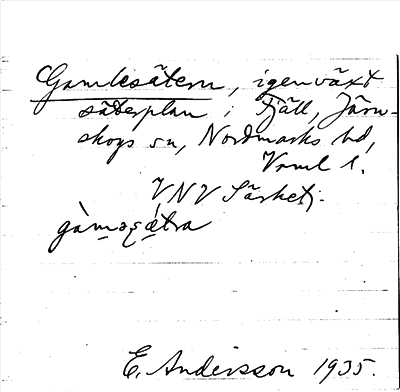 Gamlesätern, igenväxt
säterplan i Fjäll, Järn-
skogs sn, Nordmarks hd,
Vrml l.
VNV Särketj.
gàmasǽtra
E. Andersson 1935.